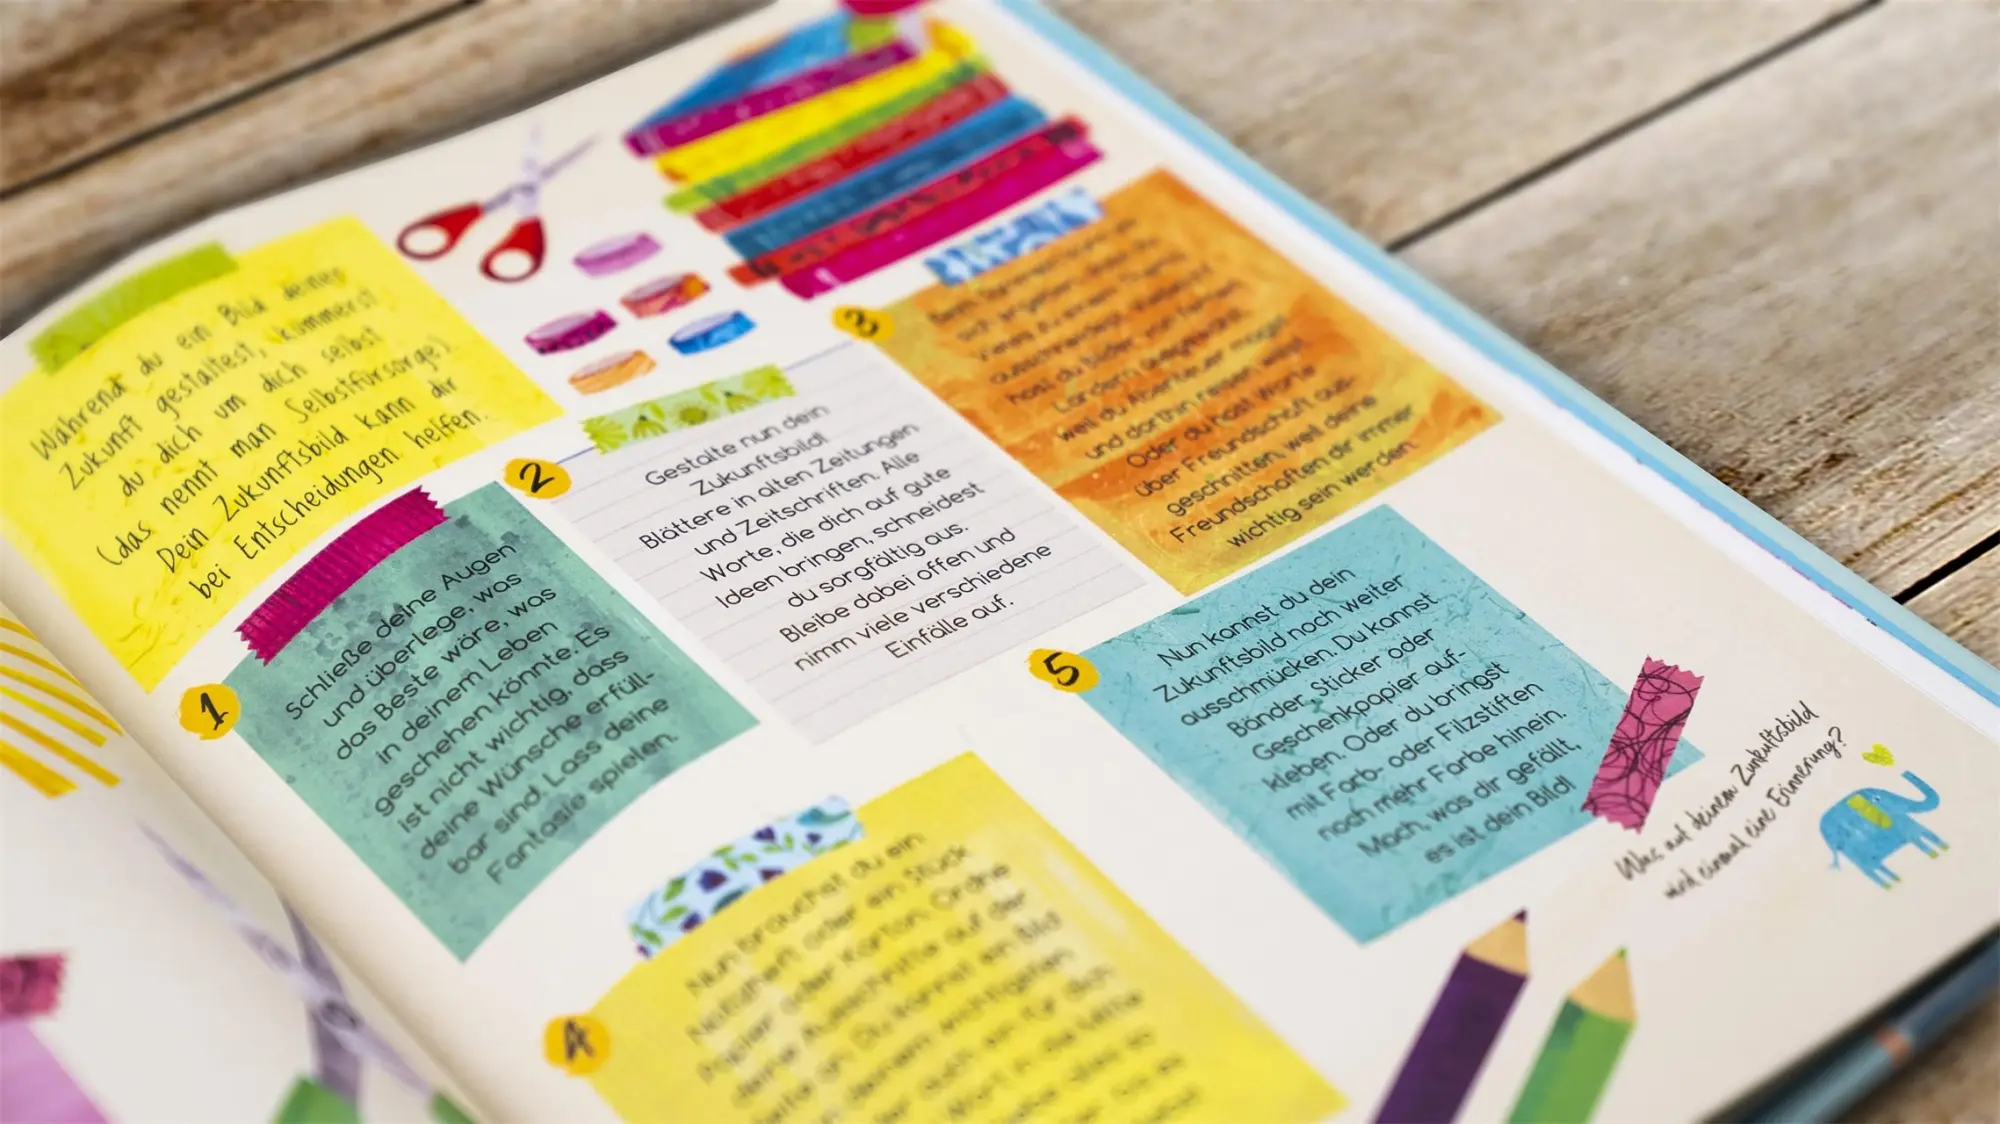 Während du ein Bild deiner
Zukunft gestaltest, kümmerst
du dich um dich selbst
(das nennt man Selbstfürsorge).
Dein Zukunftsbild kann dir
bei Entscheidungen helfen.
1
Schließe deine Augen
und überlege, was
das Beste wäre, was
in deinem Leben
geschehen könnte. Es
ist nicht wichtig, dass
deine Wünsche erfüll-
bar sind. Lass deine
Fantasie spielen.
2
Gestalte nun dein
Zukunftsbild!
Blättere in alten Zeitungen
und Zeitschriften. Alle
Worte, die dich auf gute
Ideen bringen, schneidest
du sorgfältig aus.
Bleibe dabei offen und
nimm viele verschiedene
Einfälle auf.
3
hast du Bilder von fernen
Ländern ausgewählt,
weil du Abenteuer magst
und dorthin reisen willst.
Oder du hast Worte
über Freundschaft aus-
geschnitten, weil deine
Freundschaften dir immer
wichtig sein werden.
4
Nun brauchst du ein
Notizheft oder ein Stück
Papier oder Karton. Ordne
deine Ausschnitte auf der
Seite an. Du kannst ein Bild
5
Nun kannst du dein
Zukunftsbild noch weiter
ausschmücken. Du kannst
Bänder, Sticker oder
Geschenkpapier auf-
kleben. Oder du bringst
mit Farb- oder Filzstiften
noch mehr Farbe hinein.
Mach, was dir gefällt,
es ist dein Bild!
Was auf deinem Zunkuftsbild
wird einmal eine Erinnerung?